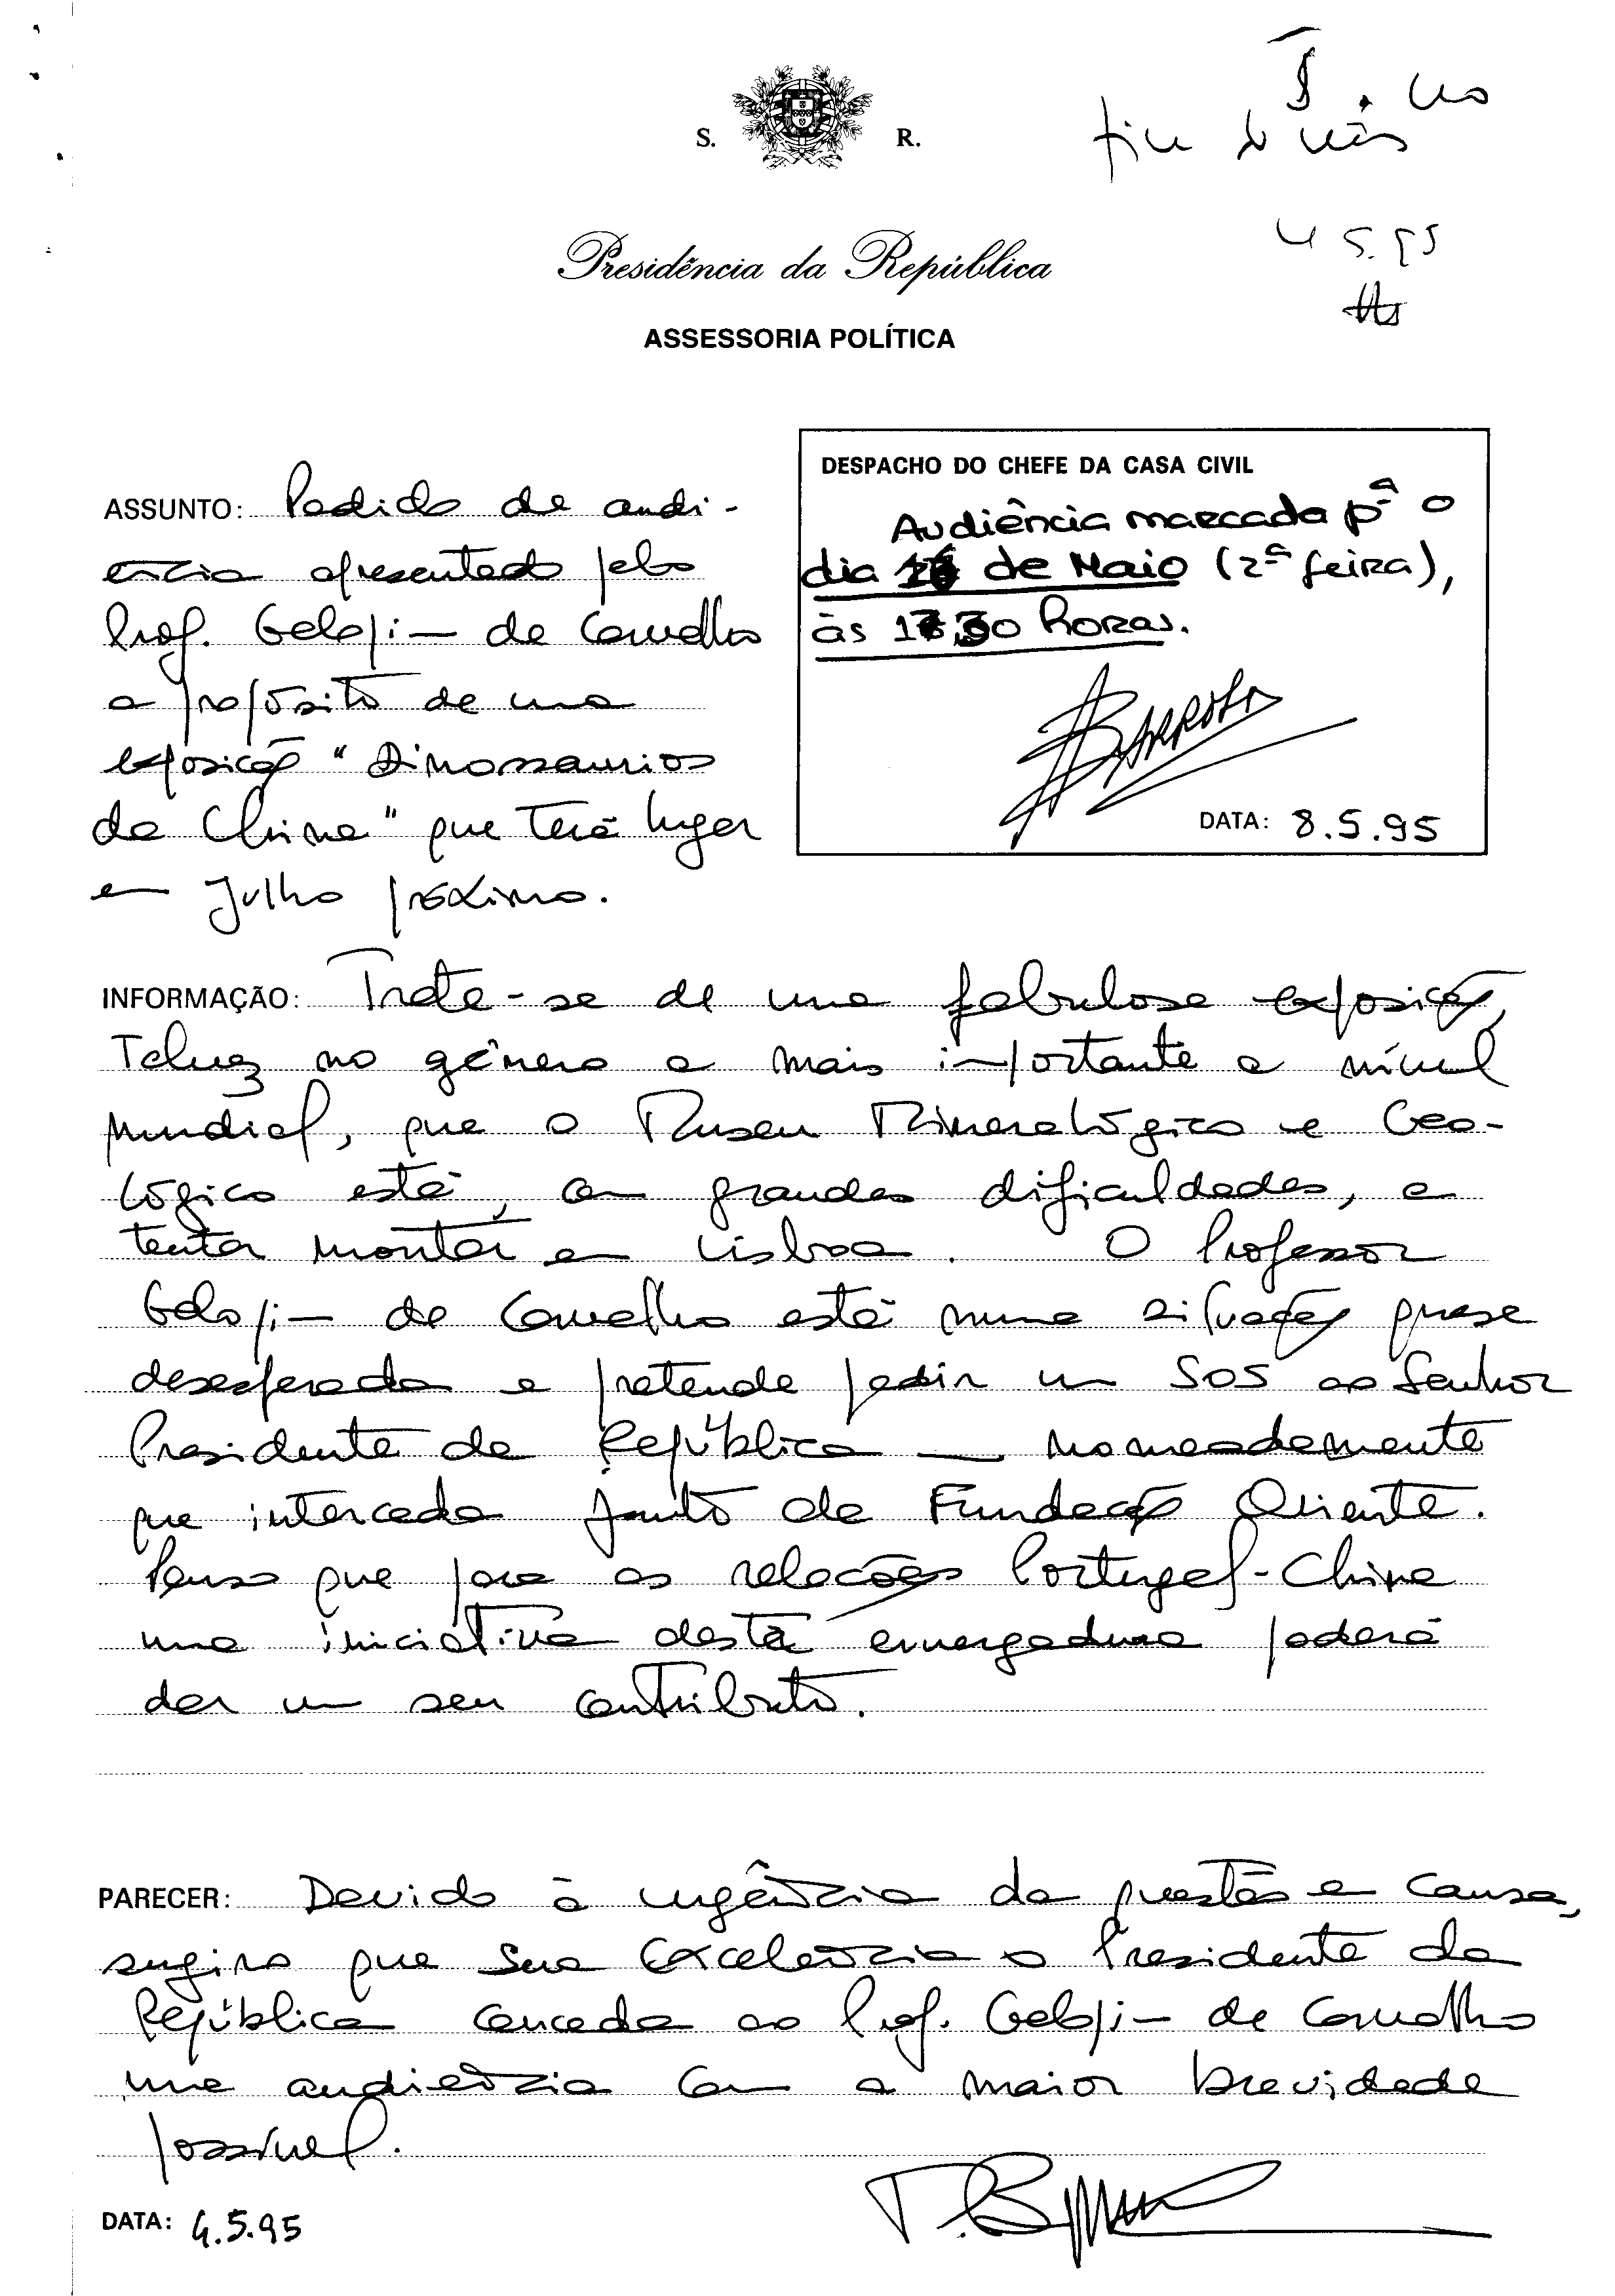 S. R.
fim do mês
4 5.95
Presidência da República
ASSESSORIA POLÍTICA
DESPACHO DO CHEFE DA CASA CIVIL
Audiência marcada pª o
dia de Maio (2ª feira),
às horas.
Barroso
DATA: 8.5.95
ASSUNTO: Pedido de audi-
ência apresentado pelo
Prof. Galopim de Carvalho
a propósito de uma
exposição "Dinossaurios
da China" que terá lugar
em Julho próximo.
INFORMAÇÃO: Trata-se de uma fabulosa exposição,
Talvez no género a mais importante a nível
mundial, que o Museu Mineralógico e Geo-
lógico está, com grandes dificuldades, a
tentar montar em Lisboa. O Professor
Galopim de Carvalho está numa situação quase
desesperada e pretende pedir um SOS ao Senhor
Presidente da República — nomeadamente
que interceda junto da Fundação Oriente.
Penso que para as relações Portugal-China
uma iniciativa desta envergadura poderá
dar um seu contributo.
PARECER: Devido à urgência da questão em causa,
sugiro que Sua Excelência o Presidente da
República conceda ao Prof. Galopim de Carvalho
uma audiência com a maior brevidade
possível.
DATA: 4.5.95